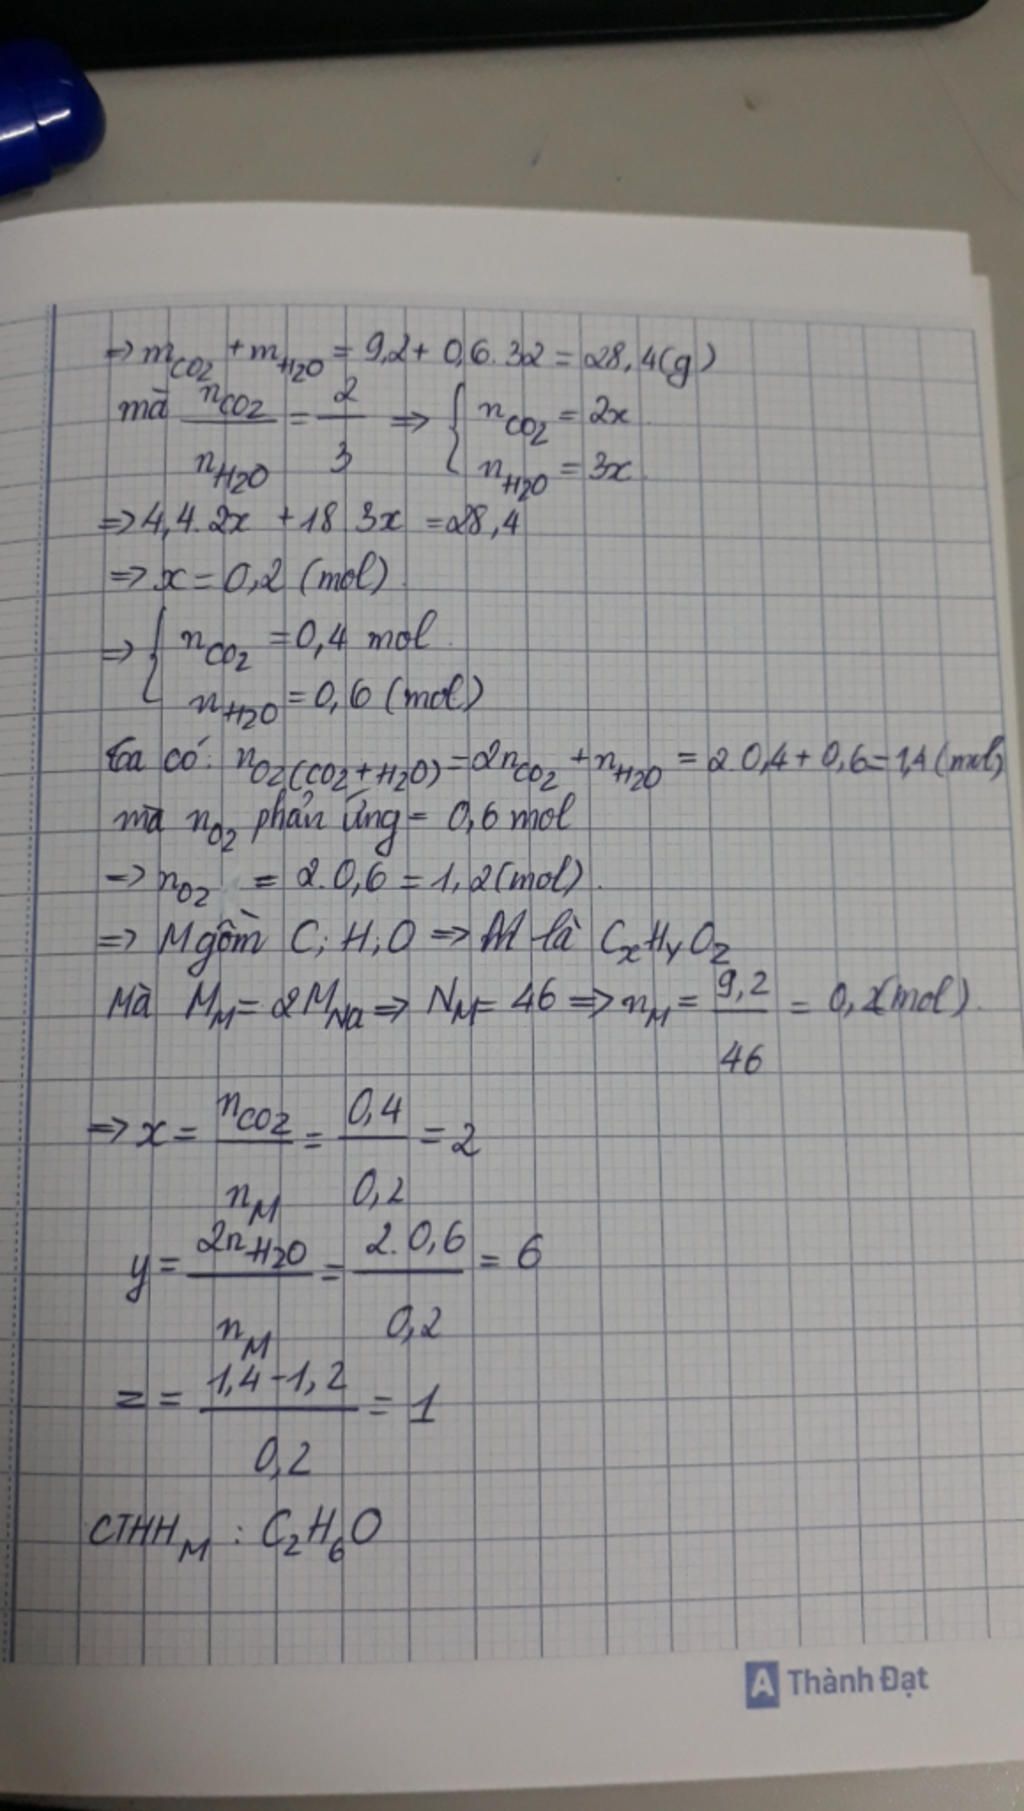 ⇒ mCO2 + mH2O = 9,2 + 0,6.32 = 28,4(g)
mà nCO2/nH2O = 2/3 ⇒ { nCO2 = 2x
nH2O = 3x
⇒ 4,4.2x + 18 3x = 28,4
⇒ x = 0,2 (mol)
⇒ { nCO2 = 0,4 mol
nH2O = 0,6 (mol)
Ta có: nO2(CO2+H2O) = 2nCO2 + nH2O = 2 0,4 + 0,6 = 1,4 (mol)
mà nO2 phản ứng = 0,6 mol
⇒ nO2 = 2.0,6 = 1,2(mol).
⇒ M gồm C; H; O ⇒ M là CxHyO2
Mà MM = 2MNa ⇒ NM = 46 ⇒ nM = 9,2/46 = 0,2(mol).
⇒ x = nCO2/nM = 0,4/0,2 = 2
y = 2nH2O/nM = 2.0,6/0,2 = 6
z = 1,4-1,2/0,2 = 1
CTHHM : C2H6O
A Thành Đạt